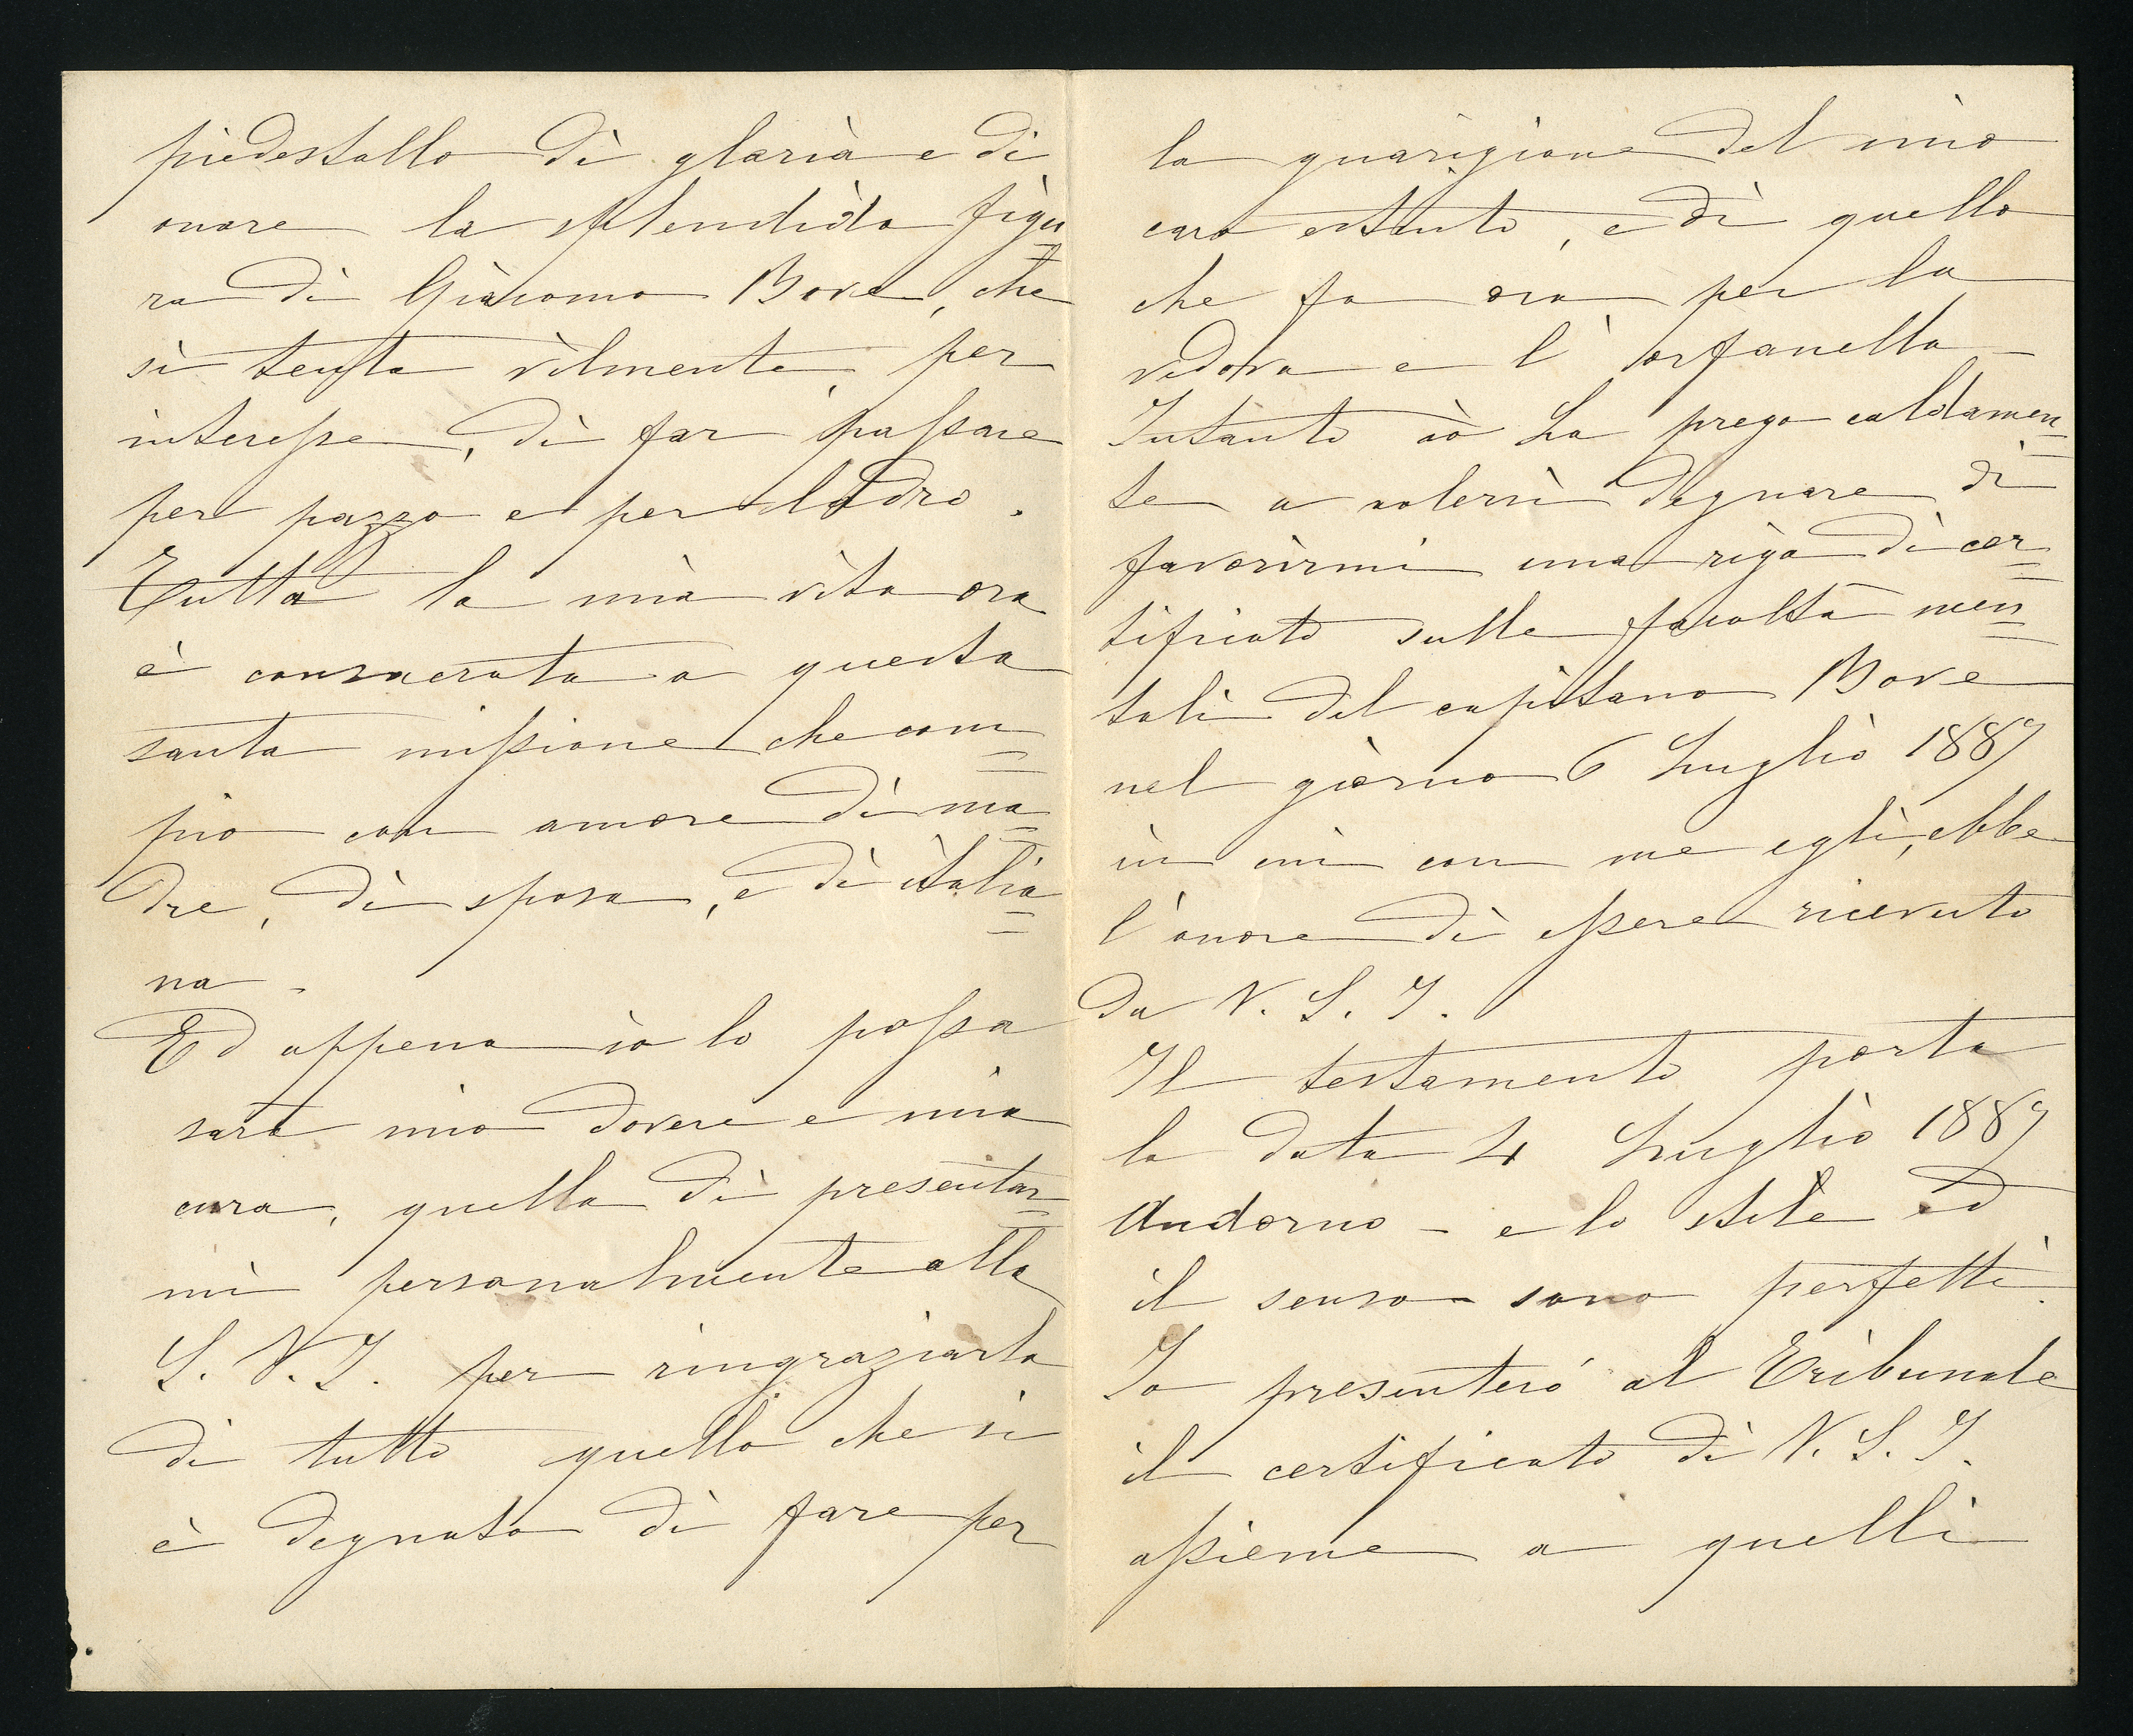 piedestallo di gloria e di
onore la splendida figu=
ra di Giacomo Bove, che
si tenta vilmente, per
interesse, di far passare
per pazzo e per ladro.
Tutta la mia vita ora
è consacrata a questa
santa missione che com=
pio con amore di ma=
dre, di sposa, e di italia=
na -
Ed appena io lo possa
sarà mio dovere e mia
cura, quella di presentar=
mi personalmente alla
S. V. I. per ringraziarla
di tutto quello che si
è degnata di fare per
la guarigione del mio
caro estinto, e di quello
che fa ora per la
vedova e l'orfanella -
Intanto io La prego caldamen=
te a volersi degnare di
favorirmi una riga di cer=
tificato sulle facoltà men=
tali del capitano Bove
nel giorno 6 Luglio 1887
in cui con me egli, ebbe
l'onore di essere ricevuto
da V. S. I.
Il testamento porta
la data 4 Luglio 1887
Andorno - e lo stile ed
il senso sono perfetti.
Io presenterò al Tribunale
il certificato di V. S. I.
assieme a quelli